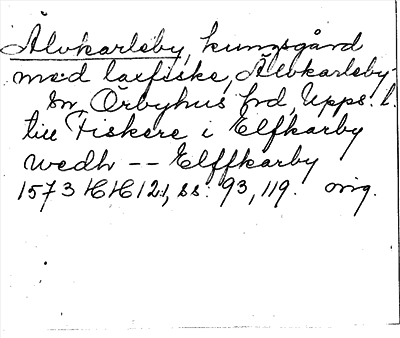 Älvkarleby, kungsgård
med laxfiske, Älvkarleby
sn, Örbyhus hrd, Upps. l.
till Fiskere i Elfkarby
wedh -- Elffkarby
1573 HH 12:, ss. 93, 119. orig.